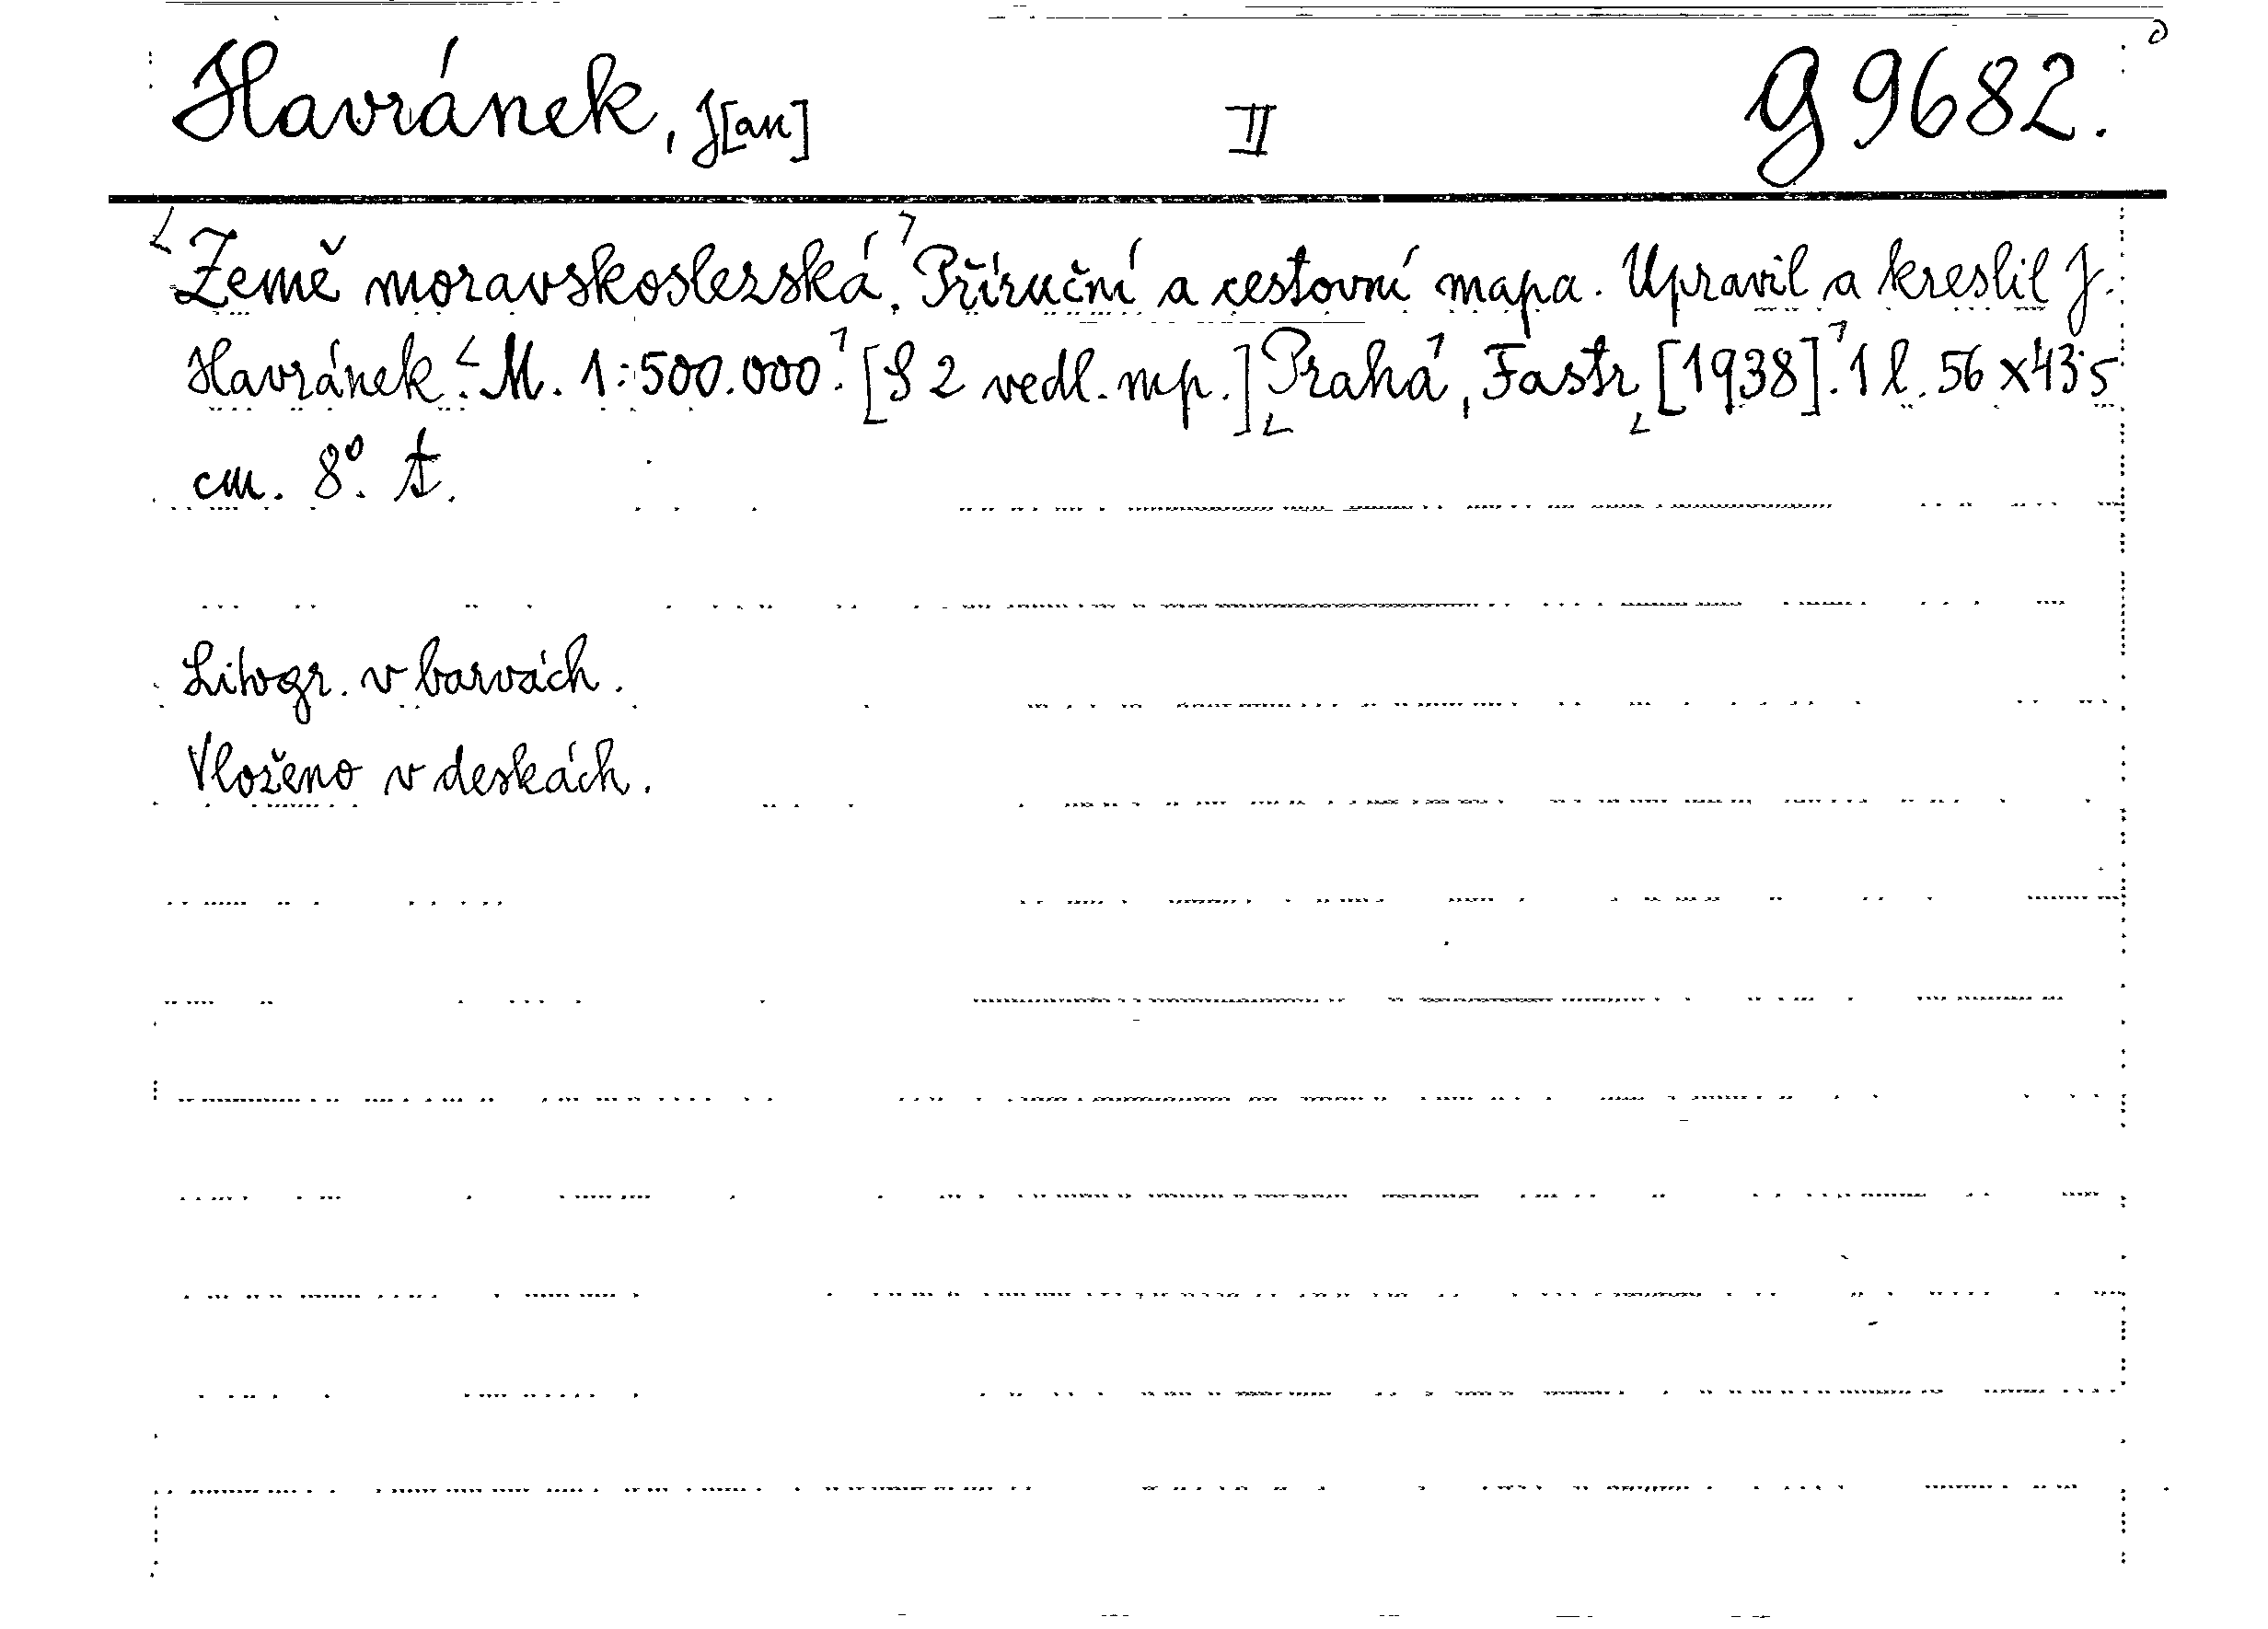 Havránek, J[an] II G 9682.
Země moravskoslezská. Příruční a cestovní mapa. Upravil a kreslil J.
Havránek. M. 1:500.000. [S 2 vedl. mp.] Praha, Fastr [1938]. 1 l. 56 x 43·5
cm. 8°.
Litogr. v barvách.
Vloženo v deskách.